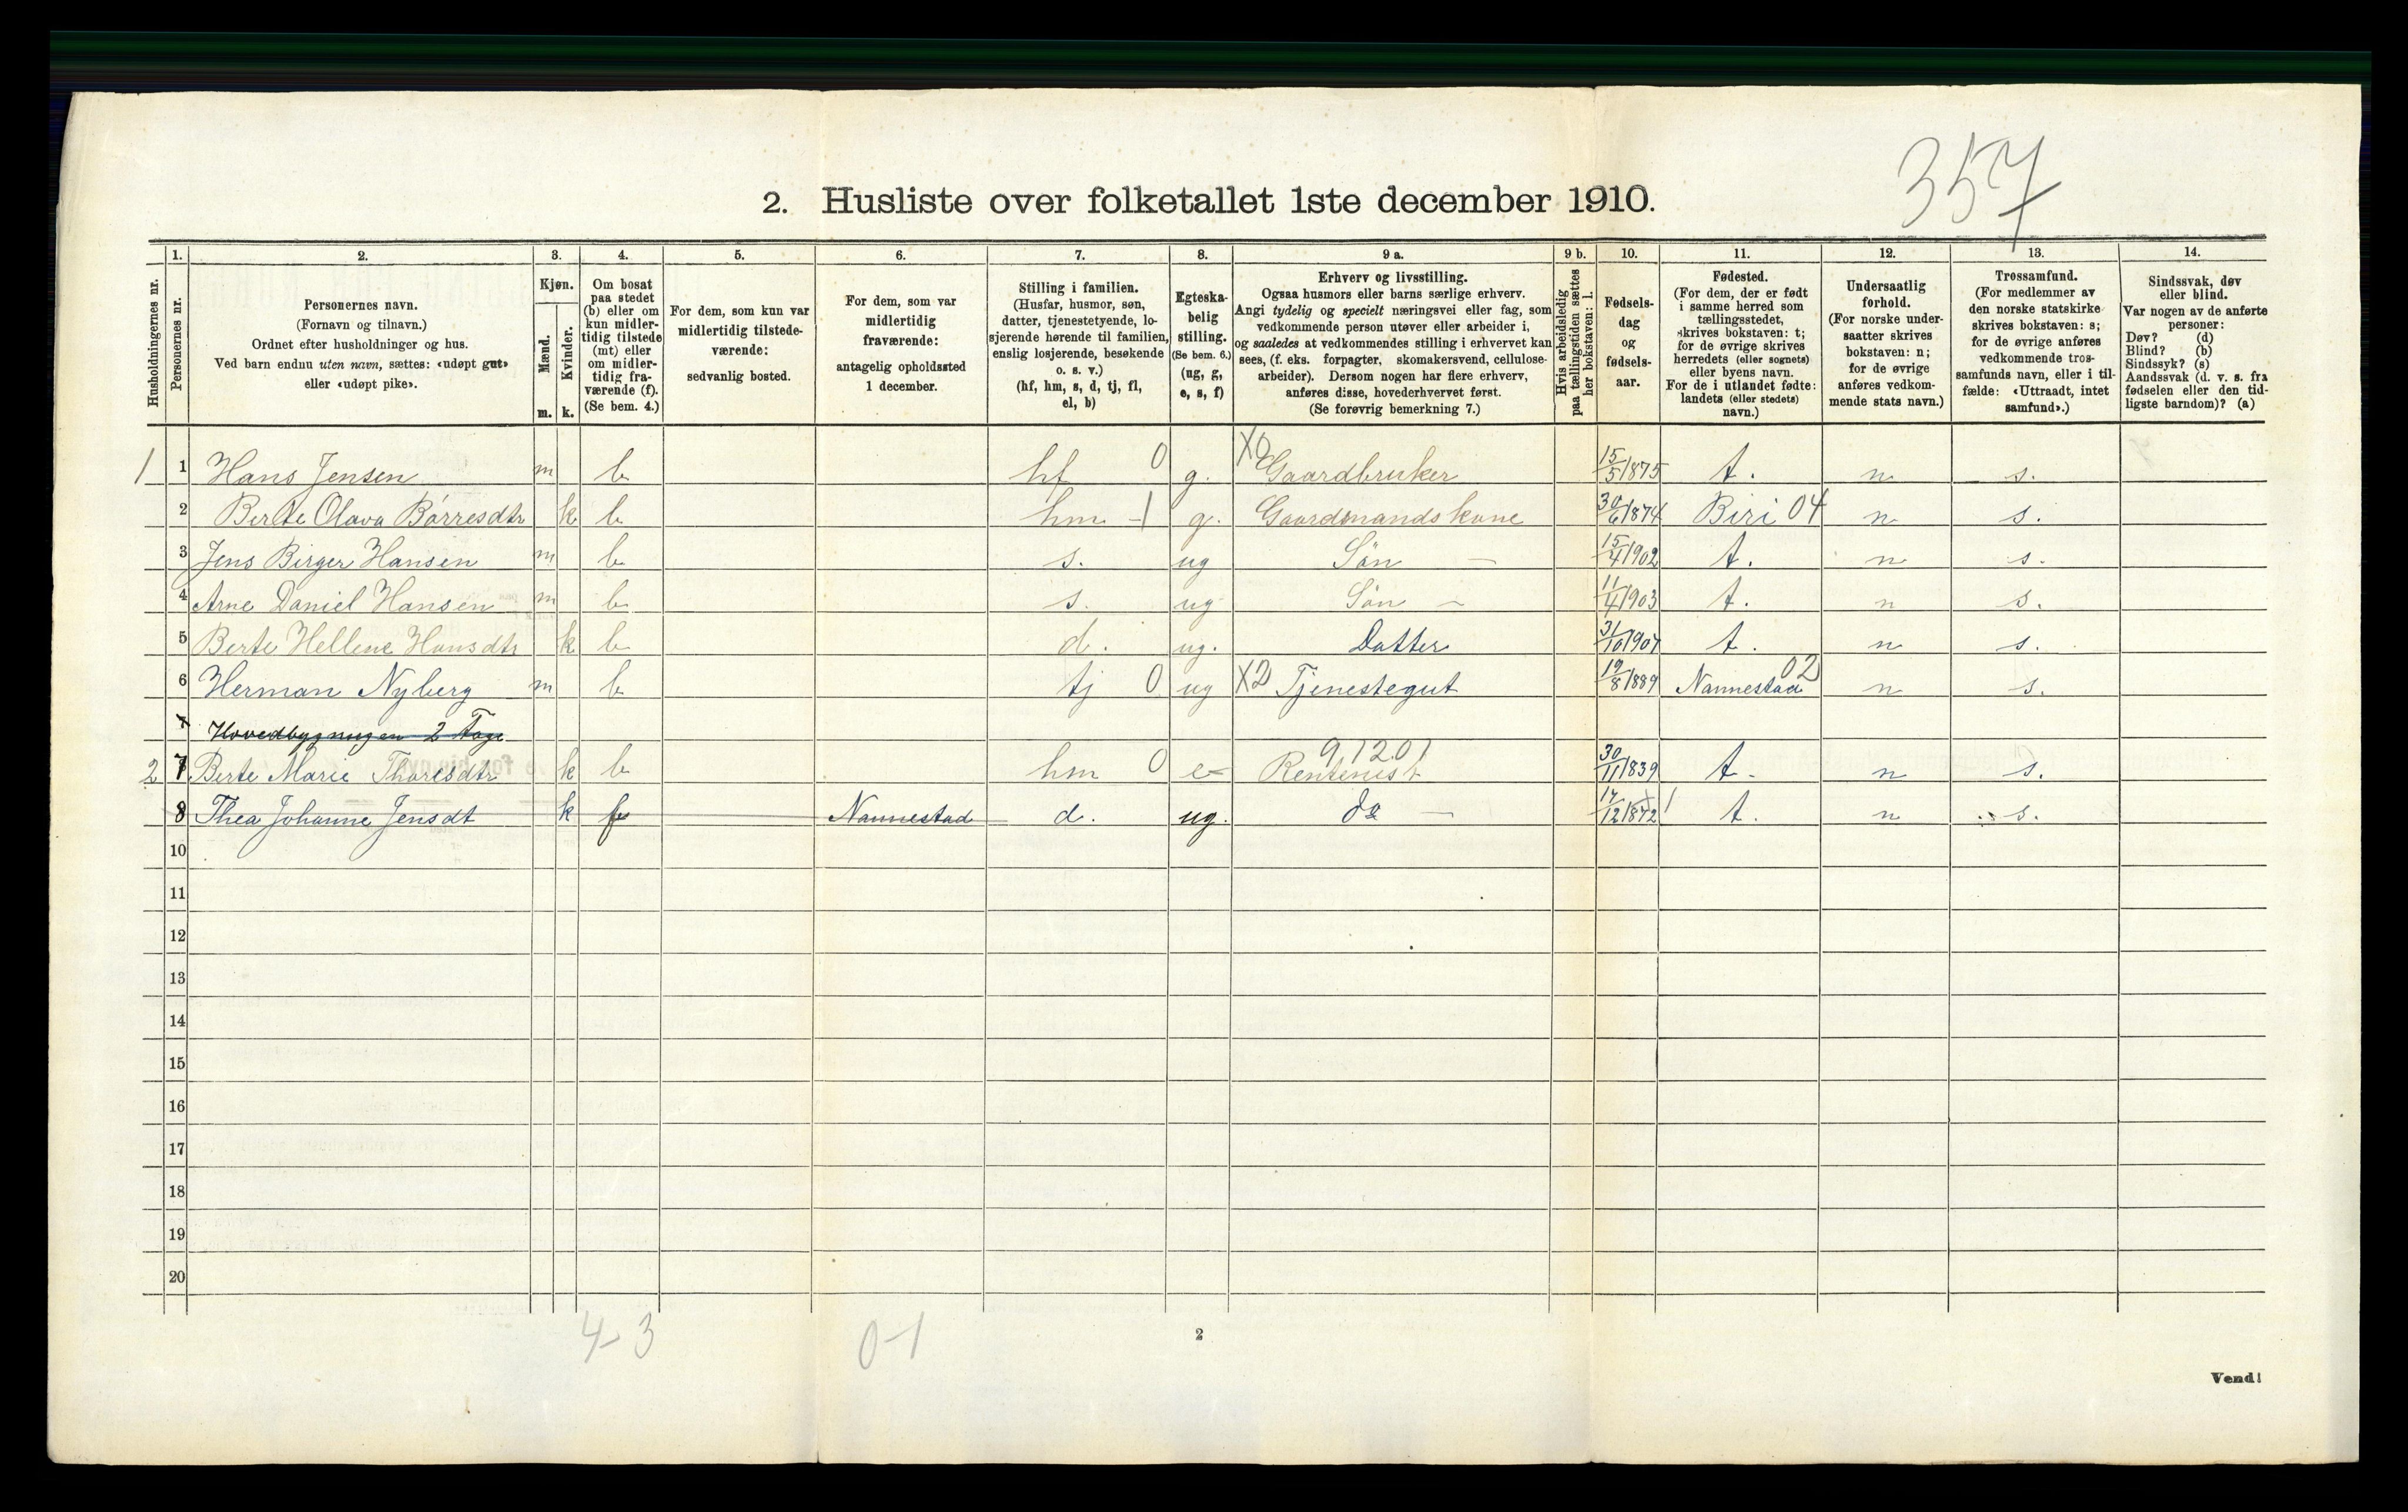 357
2. Husliste over folketallet 1ste december 1910.
1. 2. 3. 4. 5. 6. 7. 8. 9 a. 9 b. 10. 11. 12. 13. 14.
Husholdningernes nr.
Personernes nr.
Personernes navn.
(Fornavn og tilnavn.)
Ordnet efter husholdninger og hus.
Ved barn endnu uten navn, sættes: «udøpt gut»
eller «udøpt pike».
Kjøn.
Mænd.
Kvinder.
m. k.
Om bosat
paa stedet
(b) eller om
kun midler-
tidig tilstede
(mt) eller
om midler-
tidig fra-
værende (f).
(Se bem. 4.)
For dem, som kun var
midlertidig tilstede-
værende:
sedvanlig bosted.
For dem, som var
midlertidig
fraværende:
antagelig opholdssted
1 december.
Stilling i familien.
(Husfar, husmor, søn,
datter, tjenestetyende, lo-
sjerende hørende til familien,
enslig losjerende, besøkende
o. s. v.)
(hf, hm, s, d, tj, fl,
el, b)
Egteska-
belig
stilling.
(Se bem. 6.)
(ug, g,
e, s, f)
Erhverv og livsstilling.
Ogsaa husmors eller barns særlige erhverv.
Angi tydelig og specielt næringsvei eller fag, som
vedkommende person utøver eller arbeider i,
og saaledes at vedkommendes stilling i erhvervet kan
sees, (f. eks. forpagter, skomakersvend, cellulose-
arbeider). Dersom nogen har flere erhverv,
anføres disse, hovederhvervet først.
(Se forøvrig bemerkning 7.)
Hvis arbeidsledig
paa tællingstiden sættes
her bokstaven: l.
Fødsels-
dag
og
fødsels-
aar.
Fødested.
(For dem, der er født
i samme herred som
tællingsstedet,
skrives bokstaven: t;
for de øvrige skrives
herredets (eller sognets)
eller byens navn.
For de i utlandet fødte:
landets (eller stedets)
navn.)
Undersaatlig
forhold.
(For norske under-
saatter skrives
bokstaven: n;
for de øvrige
anføres vedkom-
mende stats navn.)
Trossamfund.
(For medlemmer av
den norske statskirke
skrives bokstaven: s;
for de øvrige anføres
vedkommende tros-
samfunds navn, eller i til-
fælde: «Uttraadt, intet
samfund».)
Sindssvak, døv
eller blind.
Var nogen av de anførte
personer:
Døv? (d)
Blind? (b)
Sindssyk? (s)
Aandssvak (d. v. s. fra
fødselen eller den tid-
ligste barndom)? (a)
1 1 Hans Jensen m b hf 0 g. X0 Gaardbruker 15/5 1875 t. n s.
2 Berte Olava Börresdtr k b hm - 1 g. Gaardmandskone 30/6 1874 Biri 04 n s.
3 Jens Birger Hansen m b s. ug Sön — 15/4 1902 t. n s.
4 Arne Daniel Hansen m b s. ug Sön – 11/4 1903 t. n s.
5 Berte Hellene Hansdtr k b d. ug. Datter 31/10 1907 t. n s.
6 Herman Nyberg m b tj 0 ug X2 Tjenestegut 19/8 1889 Nannestad 02 n s.
Hovedbygningen 2 Tage
2 7 Berte Marie Thoresdtr k b hm 0 e 9,1201 Rentenist 30/11 1839 t. n s.
8 Thea Johanne Jensdt k f Nannestad d. ug. do — 17/12 1872 t. n s.
10
11
12
13
14
15
16
17
18
19
20
4-3 0-1
2
Vend!